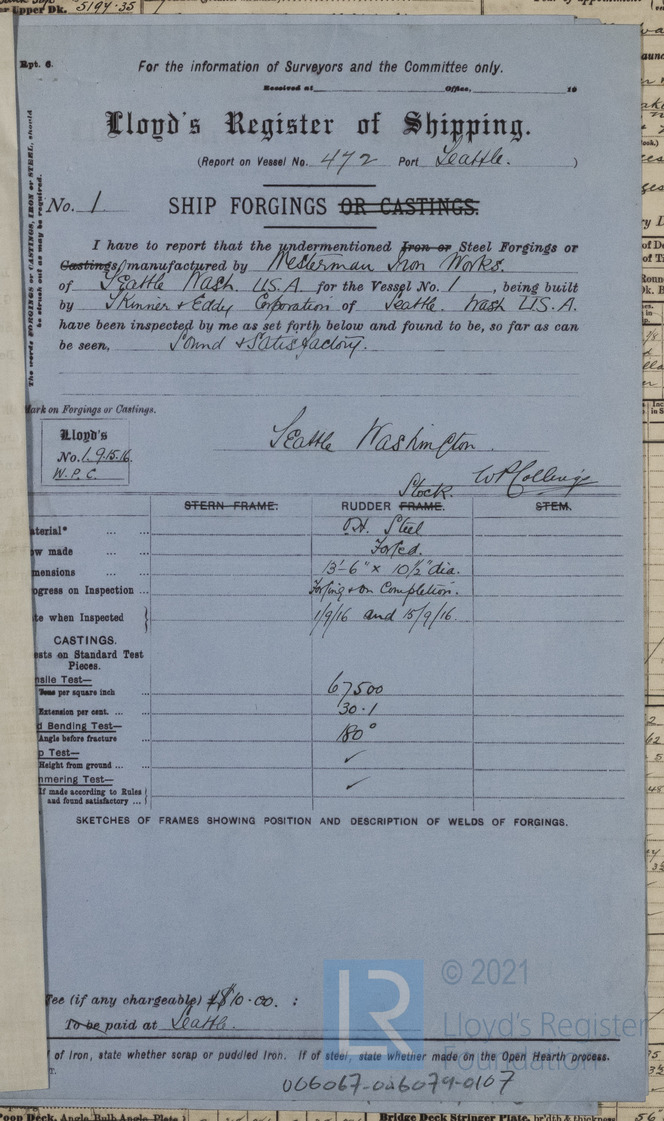 Upper Dk. 5194.35
Rpt. 6.
For the information of Surveyors and the Committee only.
Received at Office, 19
Lloyd's Register of Shipping.
(Report on Vessel No. 472 Port Seattle. )
The words FORGINGS or CASTINGS, IRON or STEEL, should be struck out as may be required.
No. 1 SHIP FORGINGS OR CASTINGS.
I have to report that the undermentioned Iron or Steel Forgings or
Castings, manufactured by Westerman Iron Works.
of Seattle Wash. U.S.A for the Vessel No. 1, being built
by Skinner & Eddy Corporation of Seattle. Wash U.S.A.
have been inspected by me as set forth below and found to be, so far as can
be seen, Sound & Satisfactory.
Mark on Forgings or Castings.
Lloyd's
No. 1. 9.15.16.
W.P.C.
Seattle Washington.
W P Collings
Stock.
STERN FRAME. RUDDER FRAME. STEM.
aterial* ... ... O.H. Steel
ow made ... ... Forged.
mensions ... ... 13'-6" x 10½" dia.
ogress on Inspection ... Forging & on Completion.
te when Inspected 1/9/16 and 15/9/16.
CASTINGS.
ests on Standard Test
Pieces.
nsile Test—
Tons per square inch ... 67500
Extension per cent. ... ... 30.1
d Bending Test—
Angle before fracture ... 180°
p Test—
Height from ground ... ... ✓
mmering Test—
If made according to Rules
and found satisfactory ... ✓
SKETCHES OF FRAMES SHOWING POSITION AND DESCRIPTION OF WELDS OF FORGINGS.
Fee (if any chargeable) £$10.00. :
To be paid at Seattle.
f of Iron, state whether scrap or puddled Iron. If of steel, state whether made on the Open Hearth process.
006067-006079-0107
LR
© 2021
Lloyd's Register
Foundation
Poop Deck, Angle, Bulb Angle, Plate
Bridge Deck Stringer Plate, br'dth & thickness